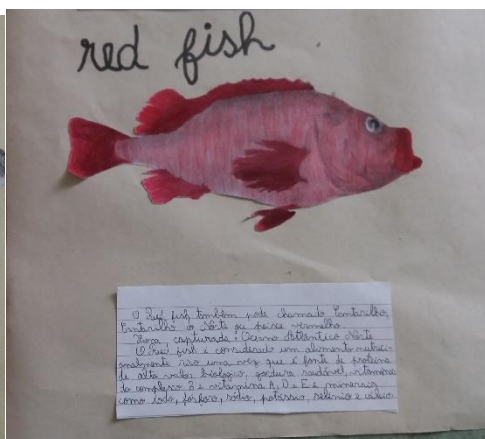 red fish
O Red fish também pode chamado Cantarilho,
Cantarilho do Norte ou peixe vermelho.
Zona capturada: Oceano Atlântico Norte
O Red fish é considerado um alimento nutrici-
onalmente rico uma vez que é fonte de proteína
de alto valor biológico, gordura saudável, vitaminas
do complexo B e vitamina A, D e E e minerais
como iodo, fósforo, sódio, potássio, selénio e cálcio.